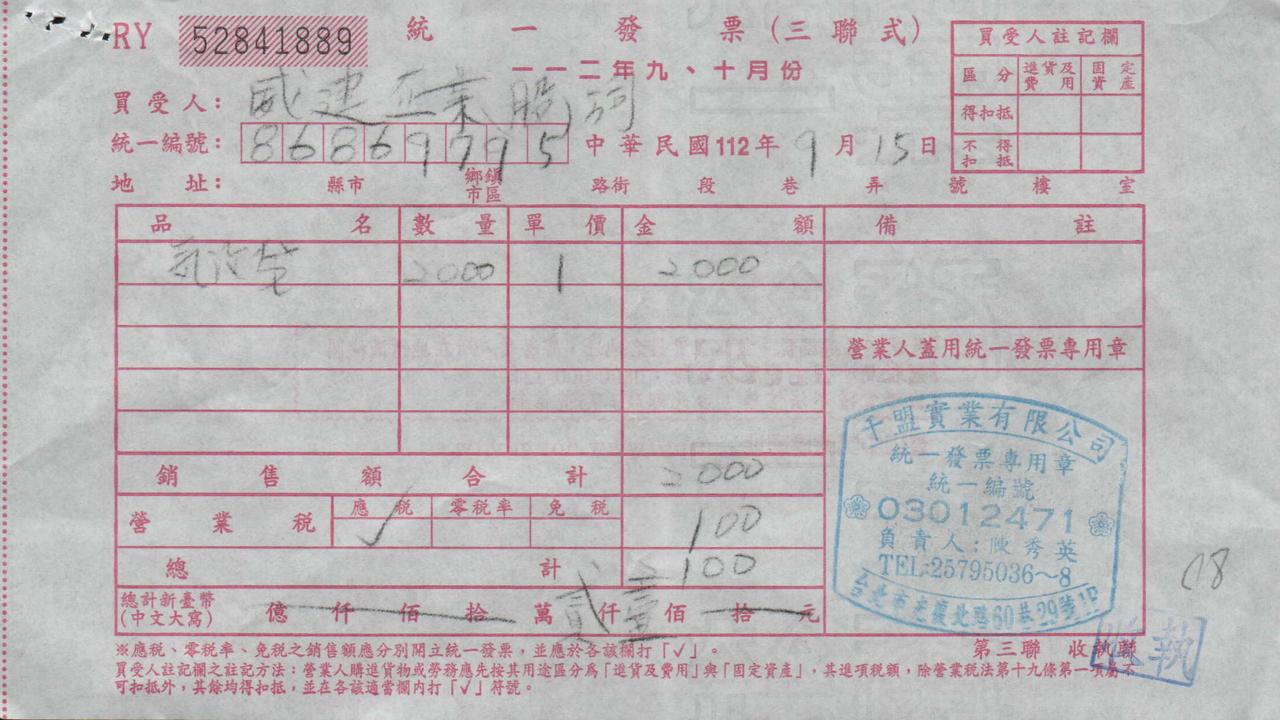 RY 52841889 統一發票(三聯式)
一一二年九、十月份
買受人註記欄
區分 進貨及費用 固定資產
得扣抵
不得扣抵
買受人:威建工業股
統一編號:86869795 中華民國112年9月15日
地址: 縣市 鄉鎮市區 路街 段 巷 弄 號 樓 室
品名 數量 單價 金額 備註
2000 1 2000
營業人蓋用統一發票專用章
銷售額合計 2000
營業稅 應稅 零稅率 免稅 100
✓
總計 2100
總計新臺幣(中文大寫) 億仟佰拾萬貳仟壹佰拾元
千盟實業有限公司
統一發票專用章
統一編號
03012471
負責人:陳秀英
TEL:25795036~8
台北市光復北路60巷29號1F
18
※應稅、零稅率、免稅之銷售額應分別開立統一發票,並應於各該欄打「✓」。
第三聯 收執聯
收執
買受人註記欄之註記方法:營業人購進貨物或勞務應先按其用途區分為「進貨及費用」與「固定資產」,其進項稅額,除營業稅法第十九條第一項屬不
可扣抵外,其餘均得扣抵,並在各該適當欄內打「✓」符號。